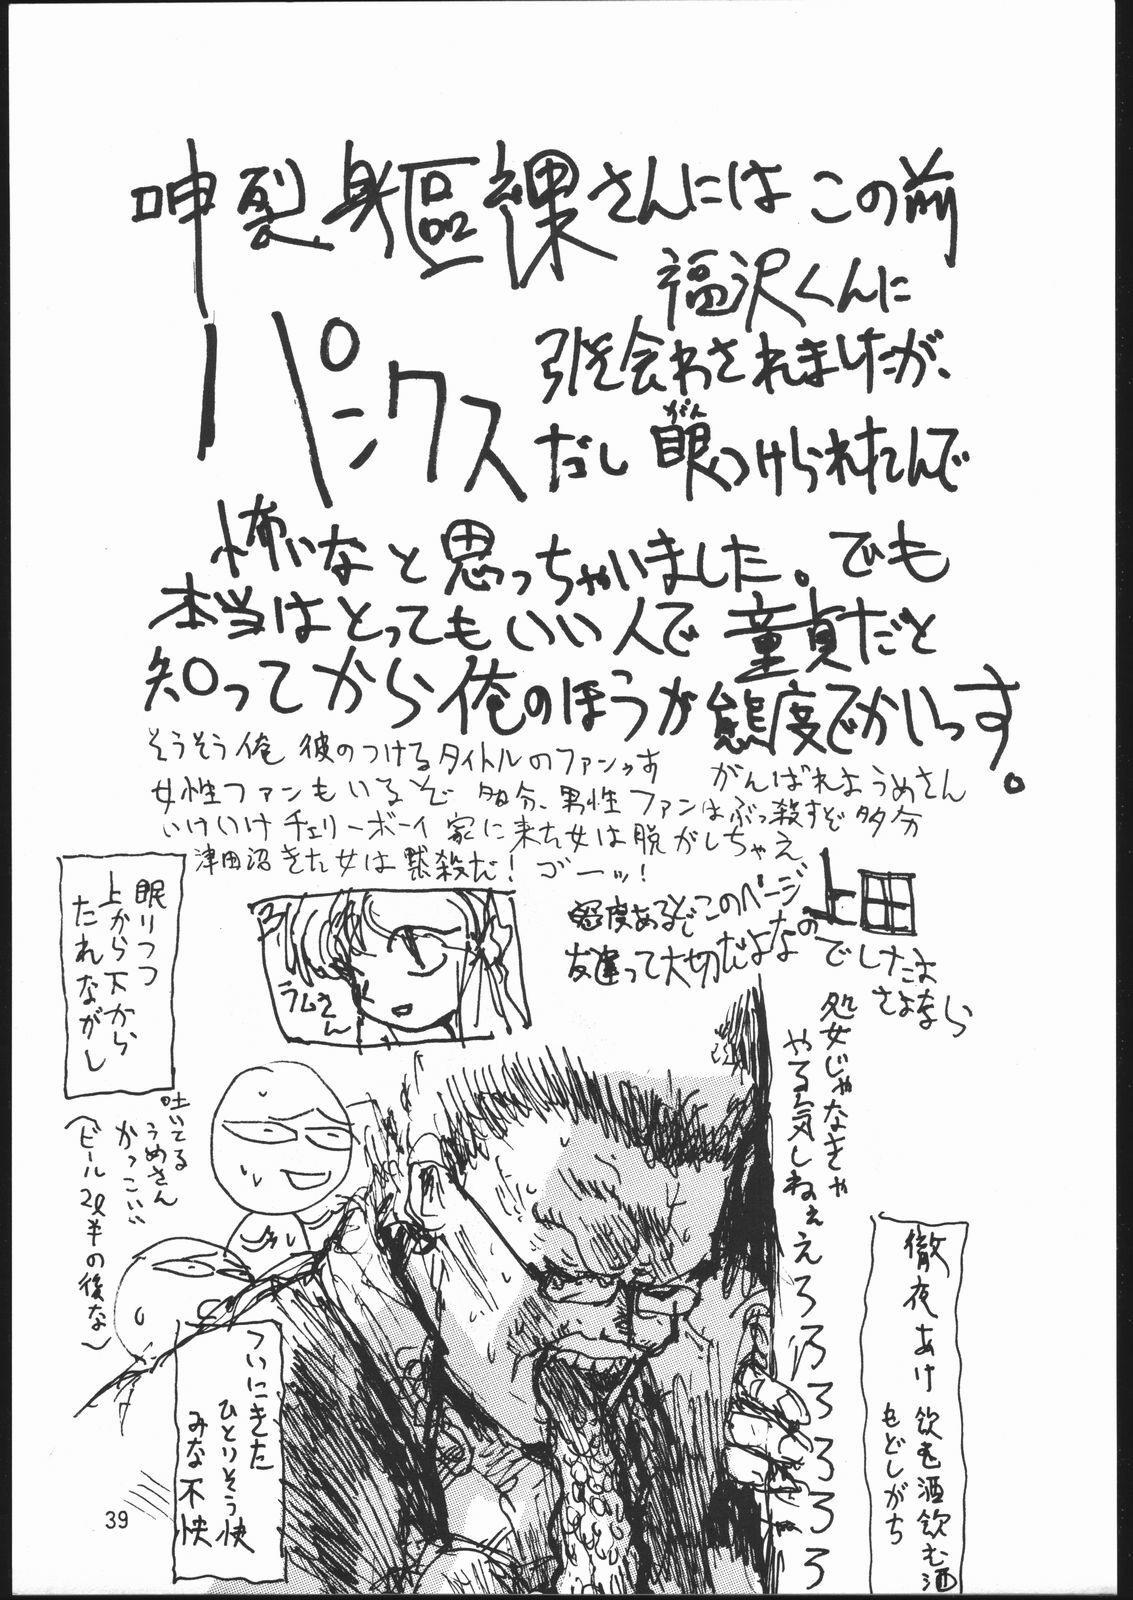 呻裂身驅裸さんには この前
福沢くんに
引き会わされましたが、
パンクス だし 眼つけられたんで
がん
怖いなと思っちゃいました。でも
本当はとってもいい人で 童貞だと
知ってから俺のほうが態度でかいっす。
そうそう俺 彼のつけるタイトルのファンっす
がんばれようめさん
女性ファンもいるぞ 多分、男性ファンはぶっ殺すぞ 多分
いけいけ チェリーボーイ 家に来た女は脱がしちゃえ
津田沼きた女は黙殺だ! ゴーッ!
態度あるとこのページ
友達って大切だよなの
上田
でしたよ
さよなら
眠りつつ
上から下から
たれながし
ラムさん
処女じゃなきゃ
やる気しねぇ
えろろろろろろろ
吐いてる
うめさん
かっこいい
(ビール2ℓ半の後な)
徹夜あけ 飲む酒飲む酒
もどしがち
ついにきた
ひとりそう快
みな不快
39